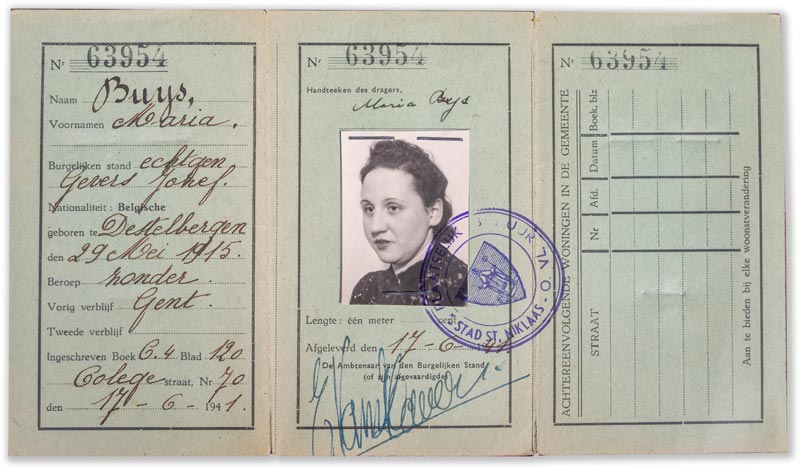 Nr 63954
Naam Buys,
Voornamen Maria.
Burgelijken stand echtgen
Gevers Jozef.
Nationaliteit : Belgische
geboren te Destelbergen
den 29 Mei 1915.
Beroep zonder.
Vorig verblijf Gent.
Tweede verblijf
Ingeschreven Boek C.4 Blad 120
Colege straat, Nr 70
den 17-6-1941.
Nr 63954
Handteeken des dragers,
Maria Buys
PLAATSELIJK BESTUUR
O. VL.
STAD ST. NIKLAAS
Lengte : één meter cent.
Afgeleverd den 17-6-
De Ambtenaar van den Burgelijken Stand
(of zijn afgevaardigde)
Nr 63954
ACHTEREENVOLGENDE WONINGEN IN DE GEMEENTE
STRAAT Nr Afd. Datum Boek, blz
Aan te bieden bij elke woonstverandering